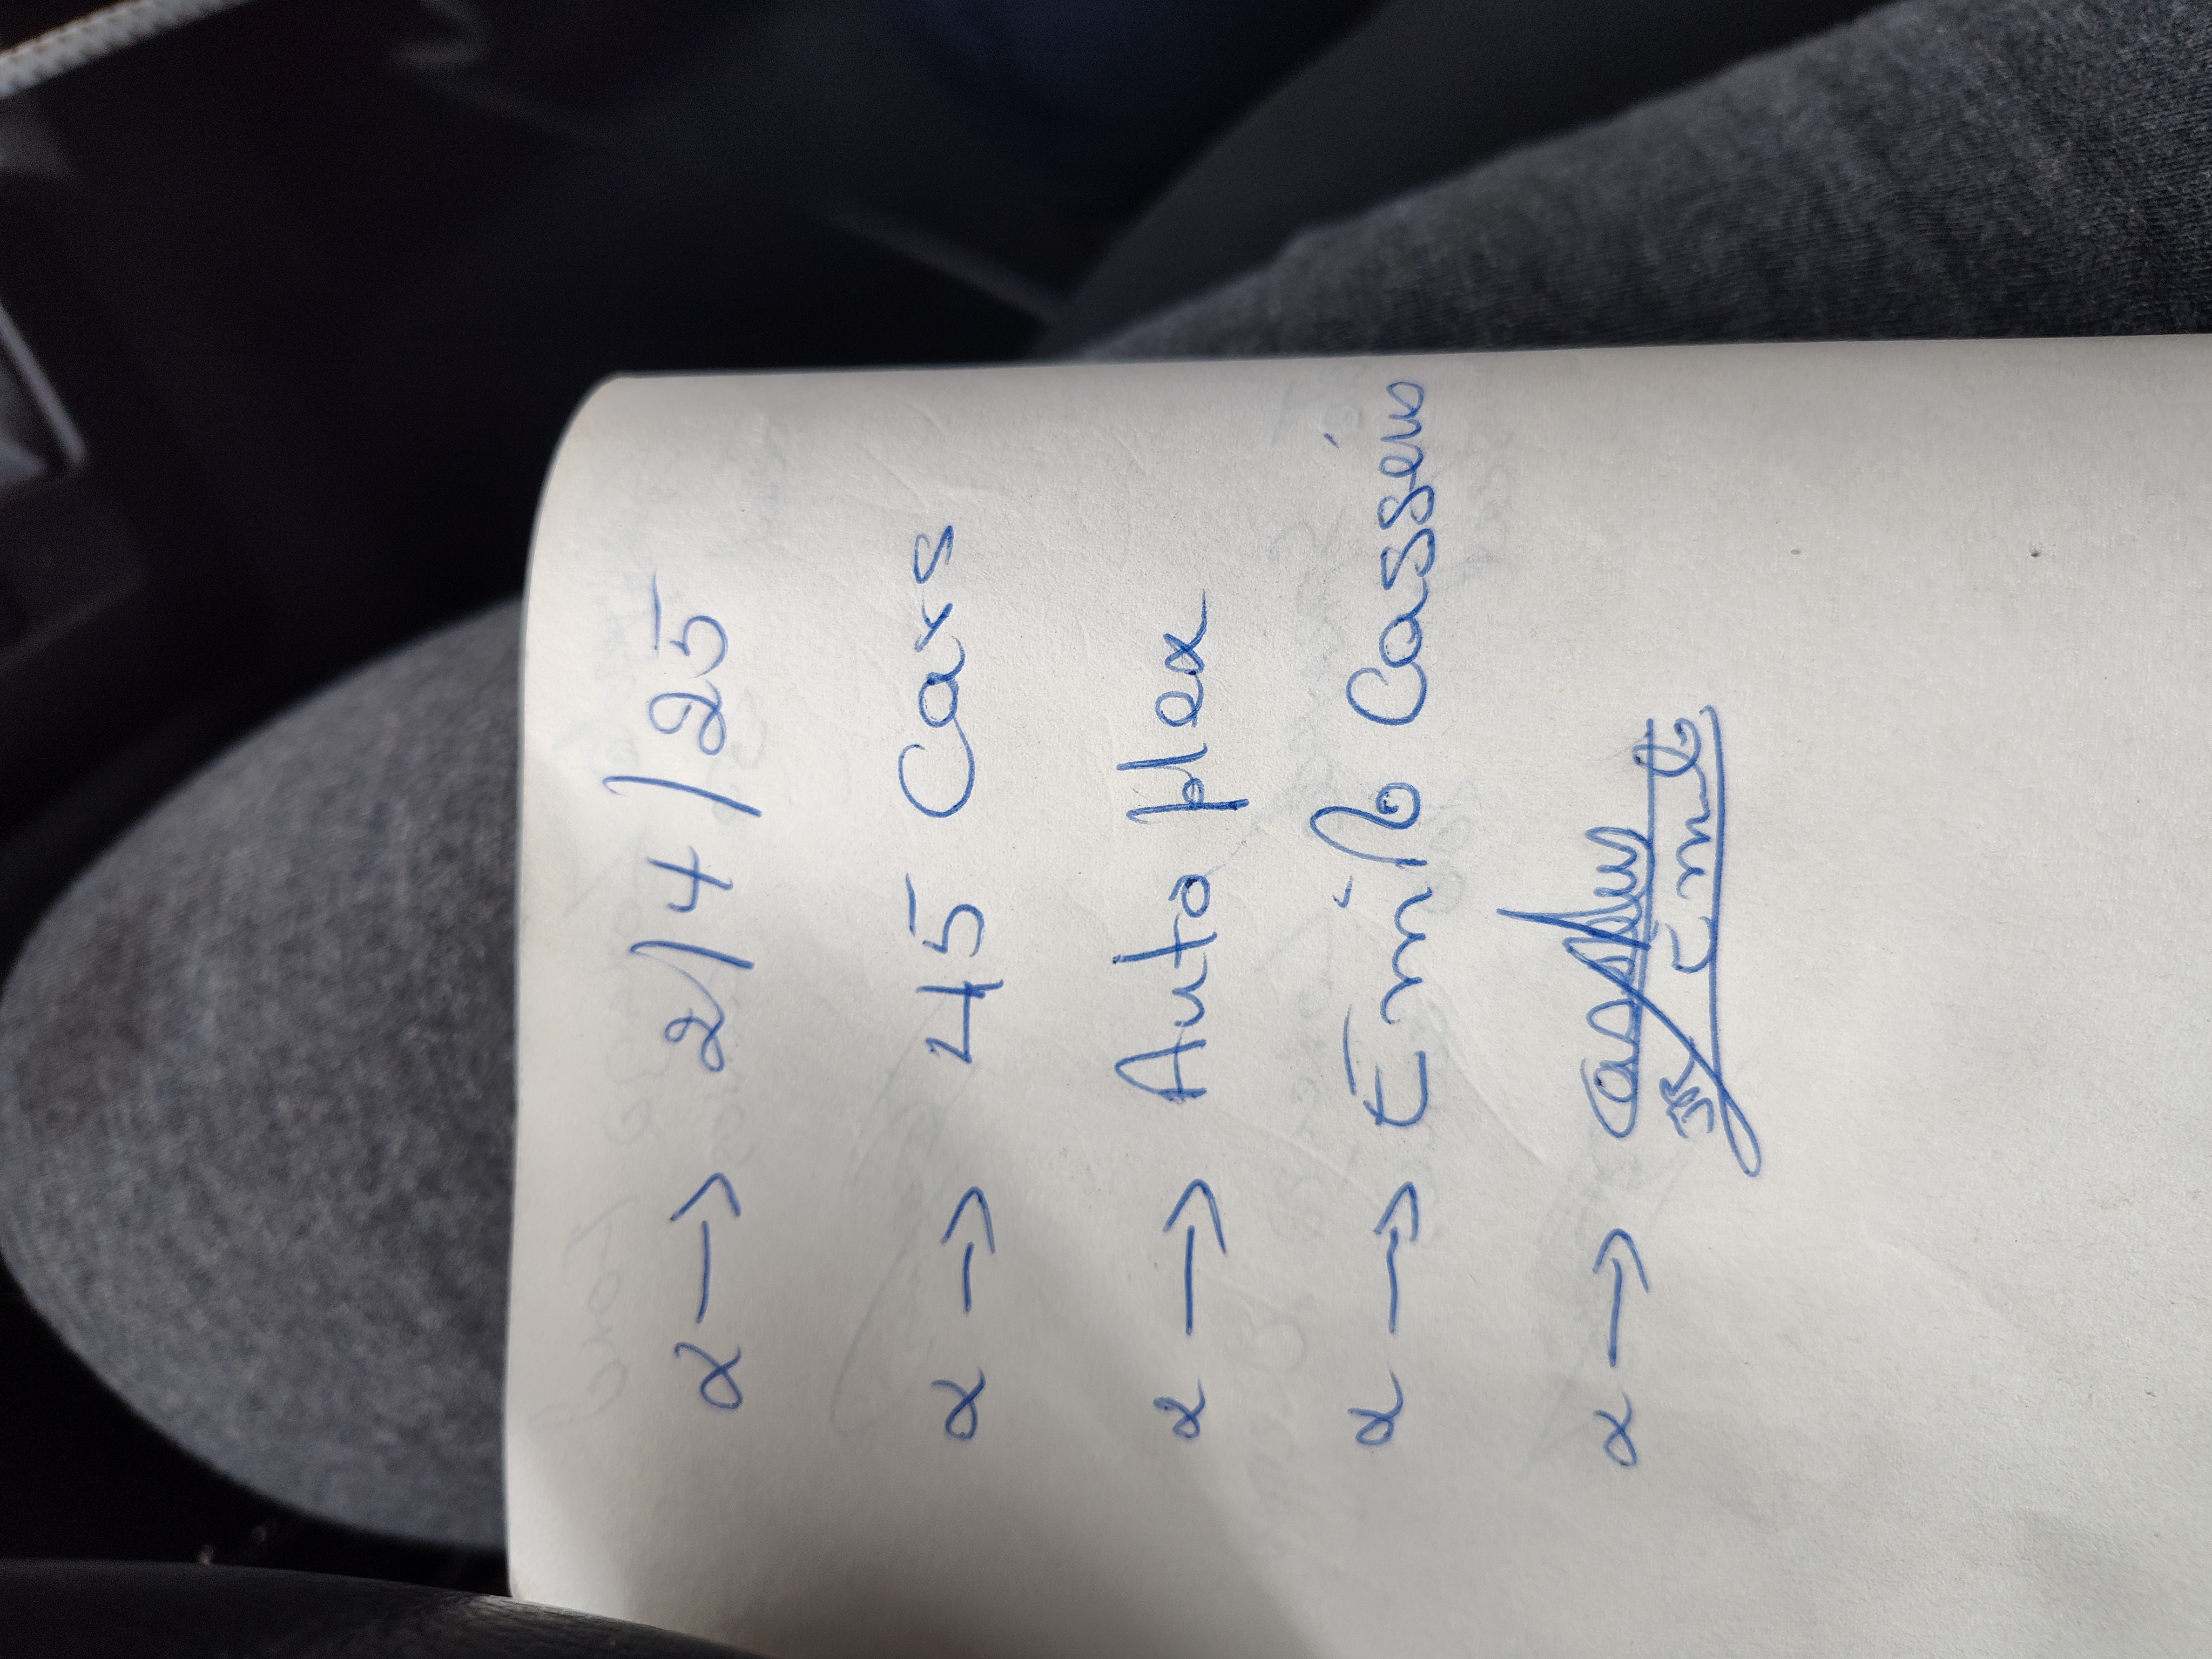 x → 2/4/25
x → 45 Cars
x → Auto plex
x → Emilo Cassein
x →